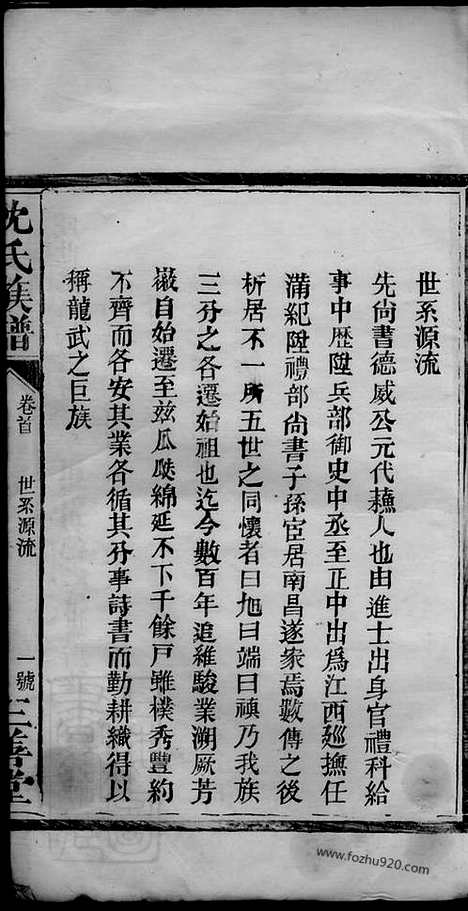 世系源流
先尚書德威公元代蘓人也由進士出身官禮科給
事中歷陞兵部御史中丞至正中出爲江西廵撫任
滿紀陞禮部尚書子孫宦居南昌遂家焉數傳之後
析居不一所五世之同懷者曰旭曰端曰禎乃我族
三分之各遷始祖也迄今數百年追維駿業溯厥芳
徽自始遷至兹瓜瓞綿延不下千餘戸雖樸秀豐約
不齊而各安其業各循其分事詩書而勤耕織得以
稱龍武之巨族
沈氏族譜
卷首
世系源流
一號
三善堂
www.fozhu920.com